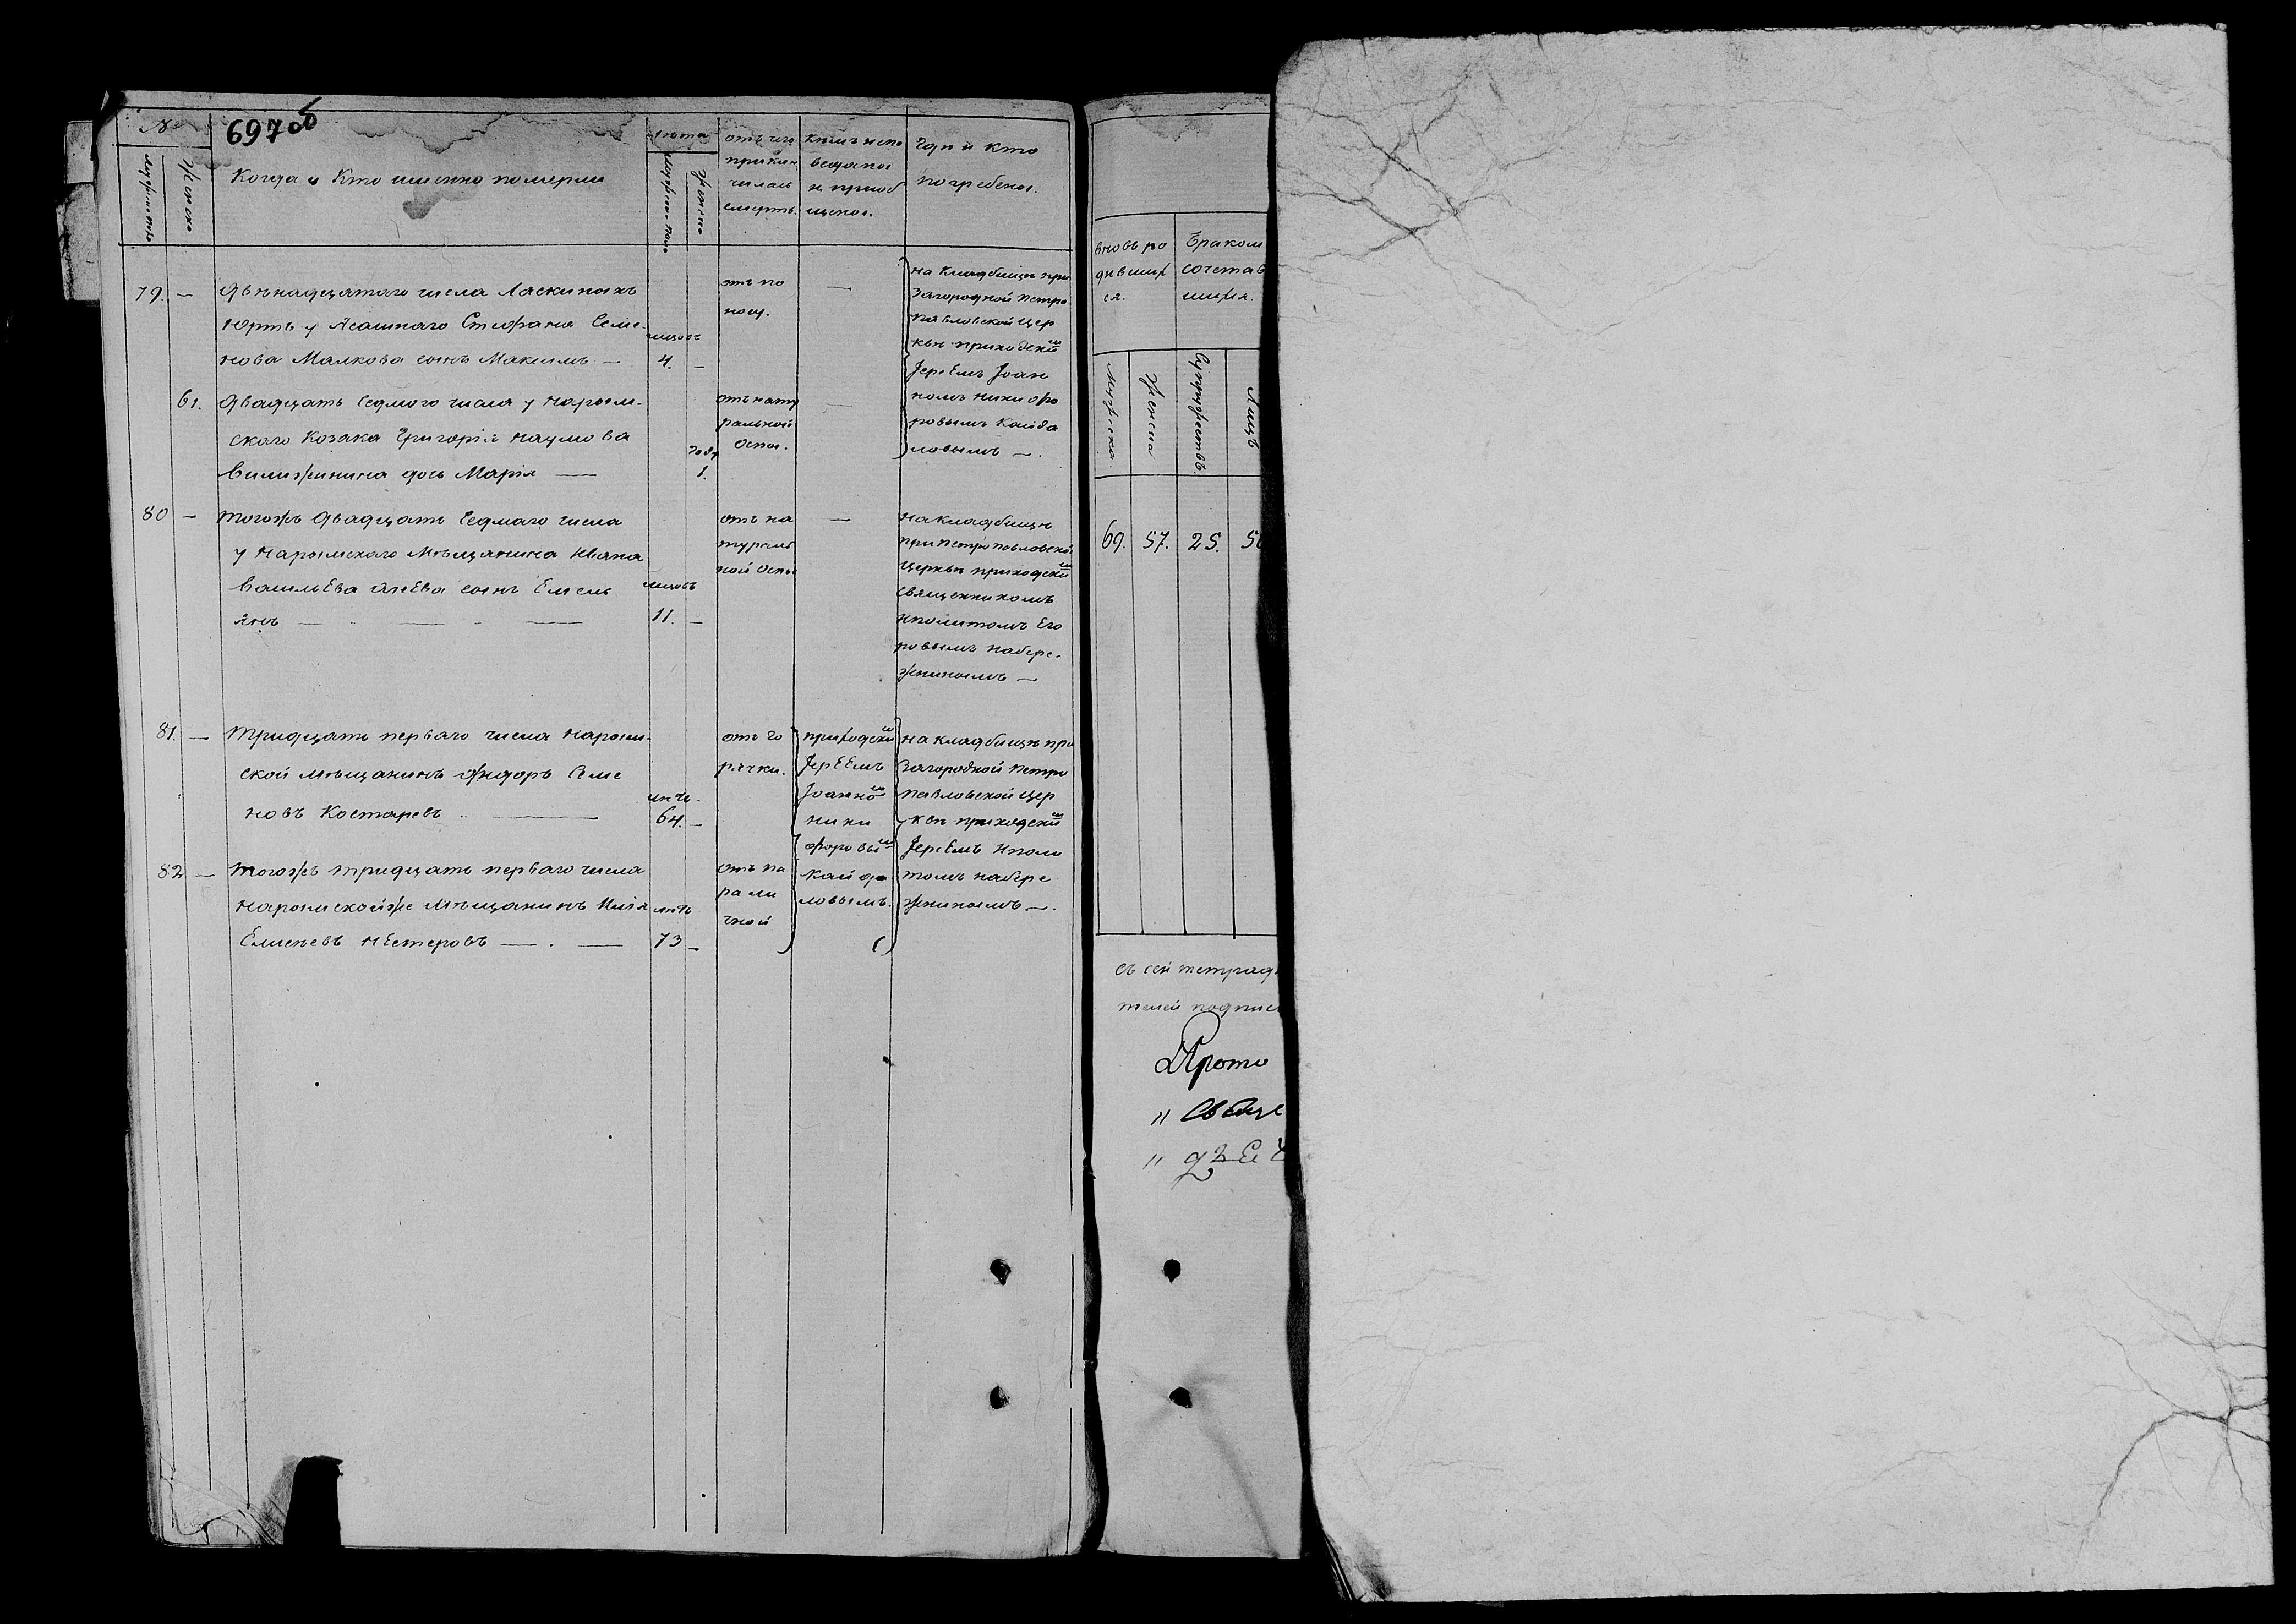 №
697 об
Мужеска
Женска
Когда и Кто именно померли
лета
Мужеска полу
Женска
отъ чего
прикли
чилась
смерть.
Кемъ испо
веданы
и приоб
щены.
Где и Кто
погребены.
79. —
Двенадцатаго числа Ласкиныхъ
Юртъ у Ясашнаго Стефана Семе-
нова Малкова сынъ Максимъ —
месяцовъ
4. —
отъ по
носу.
—
на Кладбище при
Загородной Петро
Павловской Цер
кви приходским
Іереемъ Іоан
номъ Никифо
ровымъ Кайда
ловымъ —.
61.
Двадцать Седмого числа у Нарым-
скаго Козака Григорія Наумова
Вилижинина дочь Марія —
году
1.
отъ нату
ральной
Оспы.
—
80 —
Тогожъ Двадцать Седмаго числа
у Нарымскаго Мещанина Ивана
Васильева сынъ Емель
янъ —
месяцовъ
11. —
отъ на
тураль
ной Оспы
—
на Кладбище
при Петропавловской
Церкви приходским
Священникомъ
Иполитомъ Его
ровымъ Набере-
жнинымъ —
81. —
Тридцать перваго числа Нарым-
ской мещанинъ Федоръ Семе
новъ Костаревъ —
летъ
64. —
отъ го
рячки.
приходским
Іереемъ
Іоанном
Ники
форовым
Кайда
ловымъ.
на кладбище при
Загородной Петро
Павловской Цер
кви приходским
Іереемъ Иполи
томъ Набере
жнинымъ —.
82 —
Тогожъ тридцать перваго числа
Нарымскойже Мещанинъ Илія
Елисеевъ Нестеровъ — . —
летъ
73 —
отъ па
рали
чной
вновь ро
дивших
ся.
Бракосо
сочетав
шихся.
Мужеска.
Женска
Супружествъ.
Лицъ
69. 57. 25. 50
съ сей тетради
телей подпис
Прото
" Свяще
"